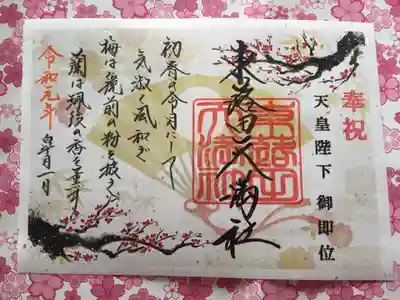 奉祝
天皇陛下 御即位
東蕗田天満社
東蕗田
天満社
初春の令月にして
気淑く風和ぎ
梅は鏡前の粉を披き
蘭は珮後の香を薫す
令和元年
皐月一日